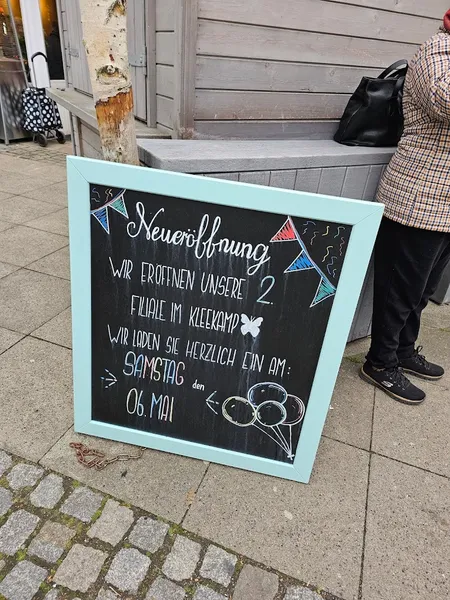 Neueröffnung
WIR ERÖFFNEN UNSERE 2.
FILIALE IM KLEEKAMP
WIR LADEN SIE HERZLICH EIN AM:
SAMSTAG den
06. MAI